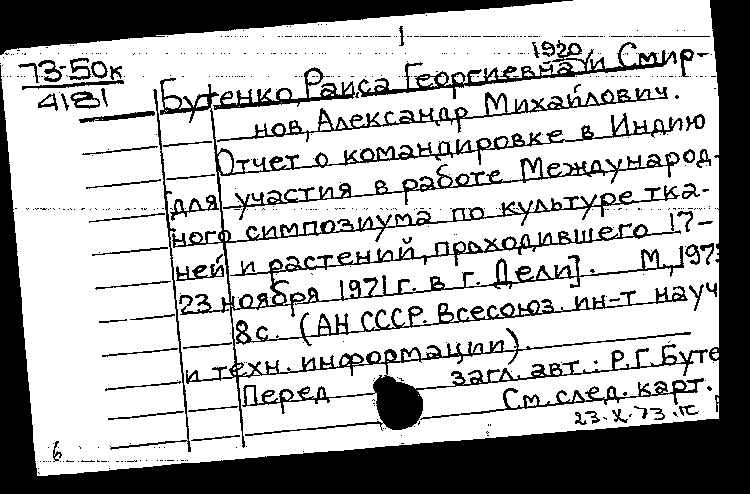 1
73-50к
4181
1920
Бутенко, Раиса Георгиевна и Смир-
нов, Александр Михайлович.
Отчет о командировке в Индию
[для участия в работе Международ-
ного симпозиума по культуре тка-
ней и растений, проходившего 17-
23 ноября 1971 г. в г. Дели]. М., 197
8 с. (АН СССР. Всесоюз. ин-т науч
и техн. информации).
Перед загл. авт.: Р.Г. Буте
См. след. карт.
23.X.73.
6